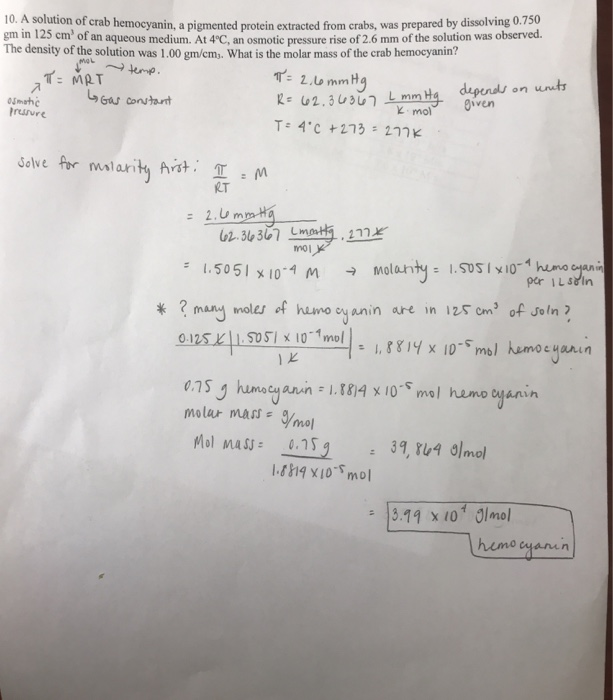 10. A solution of crab hemocyanin, a pigmented protein extracted from crabs, was prepared by dissolving 0.750
gm in 125 cm³ of an aqueous medium. At 4°C, an osmotic pressure rise of 2.6 mm of the solution was observed.
The density of the solution was 1.00 gm/cm₃. What is the molar mass of the crab hemocyanin?
mol
→ temp.
π = MRT
↳ Gas constant
osmotic
pressure
π = 2.6 mmHg
R = 62.36367 L mmHg / K·mol
depends on units
given
T = 4°C + 273 = 277K
Solve for molarity first: π / RT = M
= 2.6 mmHg / 62.36367 L mmHg / mol K · 277 K
= 1.5051 x 10⁻⁴ M → molarity = 1.5051 x 10⁻⁴ hemocyanin
per 1L soln
* ? many moles of hemocyanin are in 125 cm³ of soln?
0.125 L | 1.5051 x 10⁻⁴ mol / 1 L = 1.8814 x 10⁻⁵ mol hemocyanin
0.75 g hemocyanin = 1.8814 x 10⁻⁵ mol hemocyanin
molar mass = g/mol
Mol mass = 0.75 g / 1.8814 x 10⁻⁵ mol = 39,864 g/mol
= 3.99 x 10⁴ g/mol
hemocyanin